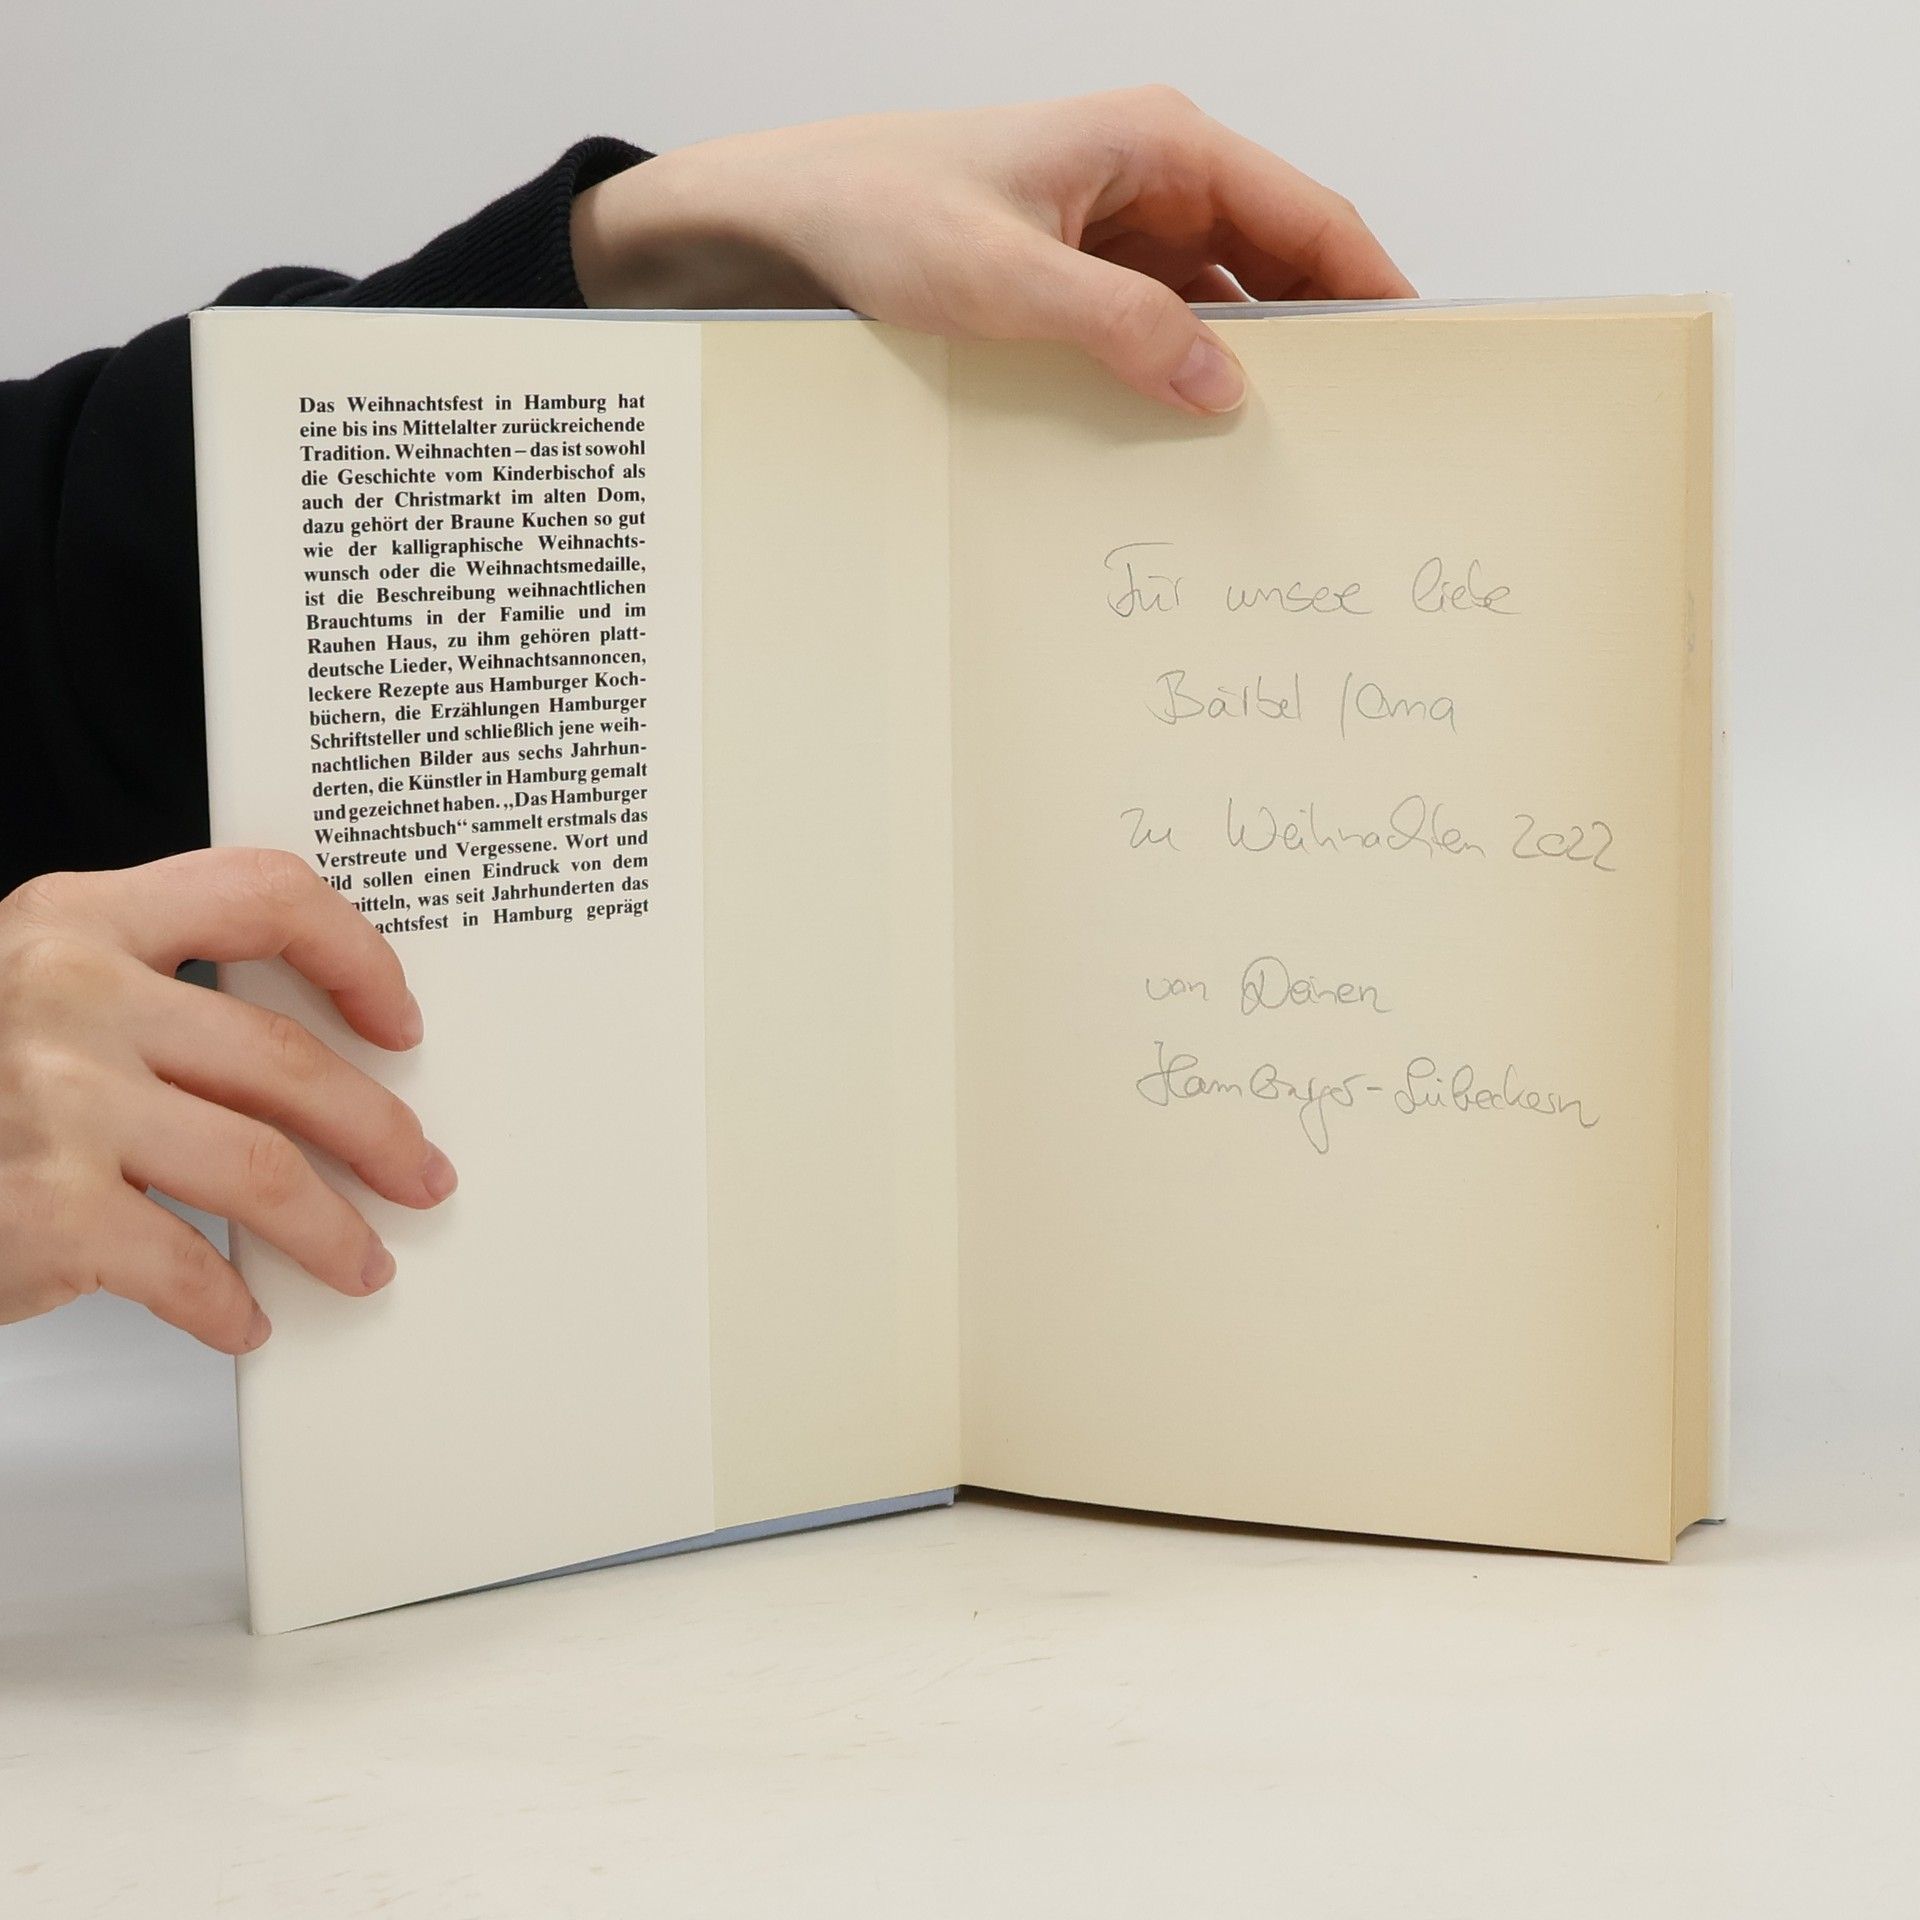 Das Weihnachtsfest in Hamburg hat
eine bis ins Mittelalter zurückreichende
Tradition. Weihnachten – das ist sowohl
die Geschichte vom Kinderbischof als
auch der Christmarkt im alten Dom,
dazu gehört der Braune Kuchen so gut
wie der kalligraphische Weihnachts-
wunsch oder die Weihnachtsmedaille,
ist die Beschreibung weihnachtlichen
Brauchtums in der Familie und im
Rauhen Haus, zu ihm gehören platt-
deutsche Lieder, Weihnachtsannoncen,
leckere Rezepte aus Hamburger Koch-
büchern, die Erzählungen Hamburger
Schriftsteller und schließlich jene weih-
nachtlichen Bilder aus sechs Jahrhun-
derten, die Künstler in Hamburg gemalt
und gezeichnet haben. „Das Hamburger
Weihnachtsbuch“ sammelt erstmals das
Verstreute und Vergessene. Wort und
ild sollen einen Eindruck von dem
itteln, was seit Jahrhunderten das
achtsfest in Hamburg geprägt
Für unsere liebe
Bärbel / Oma
zu Weihnachten 2022
von Deinen
Hamburger-Lübeckern